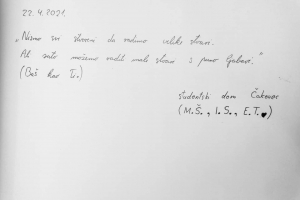 22.4.2021.
„Nismo svi stvoreni da radimo velike stvari.
Ali zato možemo raditi male stvari s puno ljubavi."
(Baš kao Ti.)
studentski dom Čakovec
(M.Š., I.S., E.T.♥)